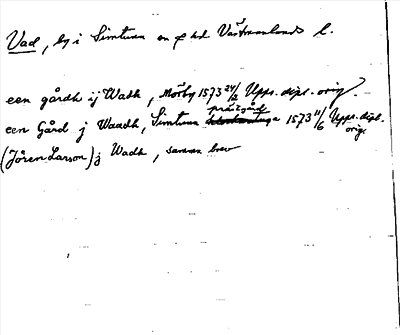 Vad, by i Simtuna sn o hd Västmanlands l.
een gårdh ij Wadh, Mörby 1573 24/12 Upps. dipl. orig.
een Gård j Waadh, Simtuna prästgård 1573 11/6 Upps. dipl. orig.
(Jören Larson) j Wadh, samma brev